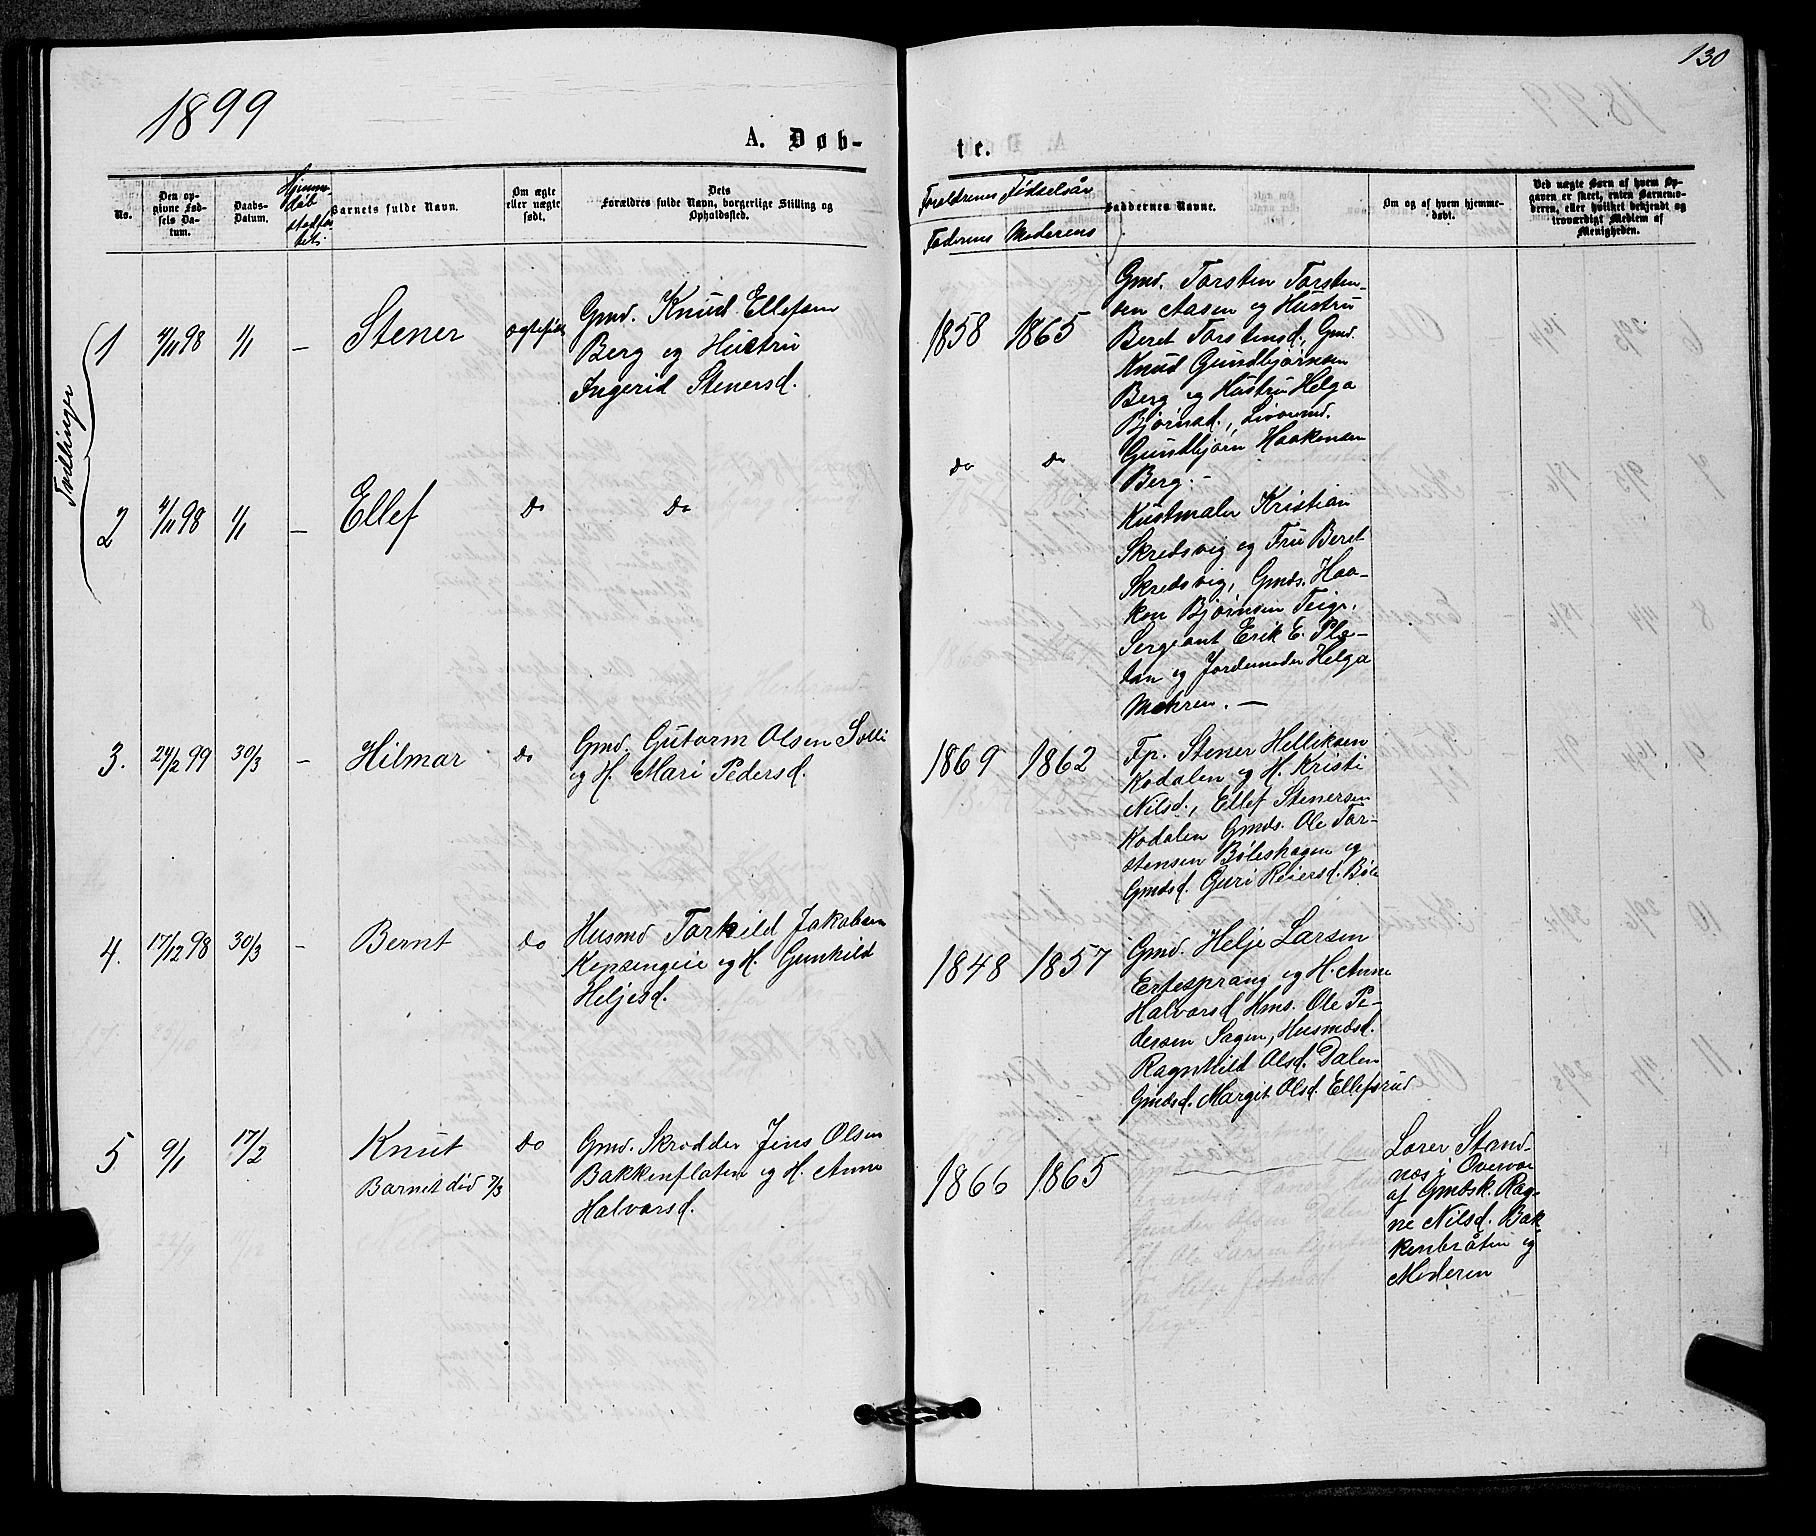 130
1899
A. Døb-
te.
No.
Den op-
givne Fød-
sels Da-
tum.
Daabs-
Datum.
Hjemme-
døb
stadfæ-
Barnets fulde Navn.
Om ægte
eller uægte
født.
Dets
Forældres fulde Navn, borgerlige Stilling og
Opholdssted.
Foreldrenes Fødselsår
Faderens Moderens
Faddernes Navne.
Om og af hvem hjemme-
døbt.
Ved uægte Børn af hvem Op-
gaven er skeet, enten Barnemo-
deren, eller hvilket bekjendt og
troværdigt Medlem af
Menigheden.
Tvillinger
1 4/11 98 1/1 – Stener ægtefødt
Gmd. Knud Ellefsen
Berg og Hustru
Ingerid Stenersd.
1858 1865
Gmd. Torsten Torsten-
sen Aasen og Hustru
Beret Torstensd., Gmd.
Knud Gundbjørnsen
Berg og Hustru Helga
Bjørnsd.,
Gundbjørn Haakensen
Berg. –
2 4/11 98 1/1 – Ellef do do
do do
Kustmaler Kristian
Skredsvig og Fru Beret
Skredsvig, Gmds. Haa-
kon Bjørnsen Teige,
Sergeant Erik E. Pla-
tan og Jordemoder Helga
Mehren. –
3. 24/2 99 30/3 – Hilmar do
Gmd. Gutorm Olsen Solli
og H. Mari Pedersd.
1869 1862
Fp. Stener Helliksen
Kodalen og H. Kristi
Nilsd., Ellef Stenersen
Kodalen Gmds. Ole Tor-
stensen Bøleshagen og
Gmdsd. Guri Reiersd. Bøle
4. 17/12 98 30/3 – Bernt do
Husmd Torkild Jakobsen
og H. Gunhild
Heljesd.
1848 1857
Gmd. Helje Larsen
Ertesprang og H. Anne
Halvorsd Hms. Ole Pe-
dersen Hagen, Husmdsd.
Ragnhild Olsd. Dalen
Gmdsd. Margit Olsd. Ellefsrud
5 9/1 17/2 Knut do
Barnet død 7/3
Gmd. Skrædder Jens Olsen
Bakkenflaten og H. Anne
Halvorsd.
1866 1865
Lærer Strand-
næs i Overvær
af Gmdsk. Rag-
ne Nilsd. Bak-
kenbråten og
Moderen